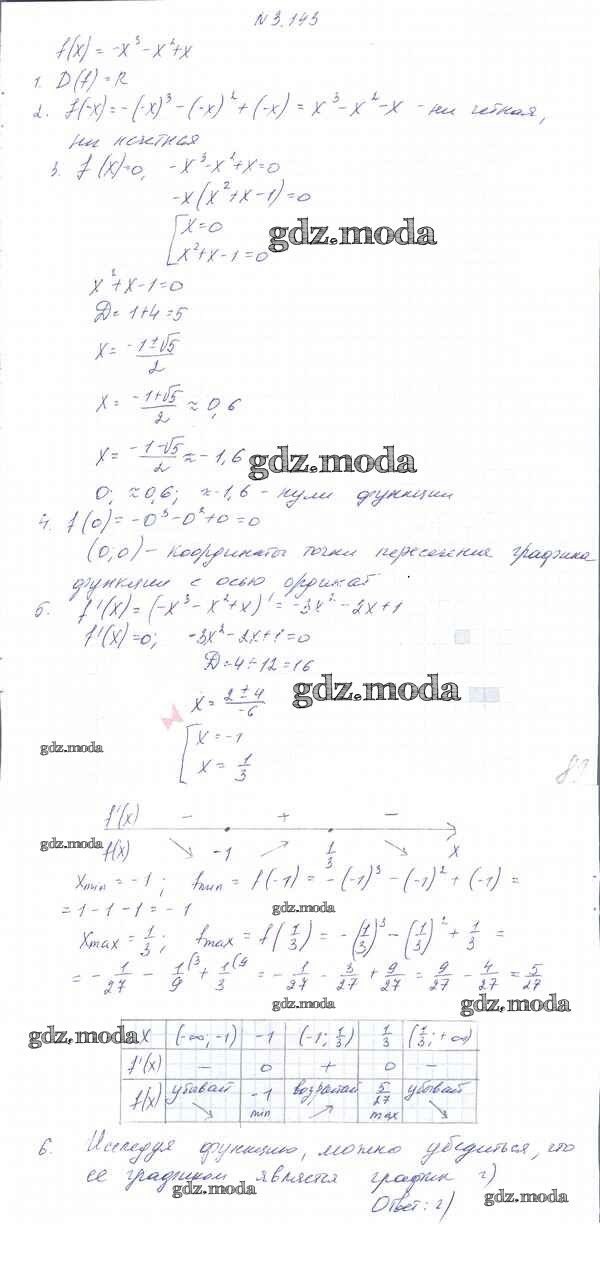 №3.143
f(x) = -x³ - x² + x
1. D(f) = R
2. f(-x) = -(-x)³ - (-x)² + (-x) = x³ - x² - x - ни четная,
ни нечетная
3. f(x)=0, -x³-x²+x=0
-x(x²+x-1)=0
[x=0
gdz.moda
x²+x-1=0
x²+x-1=0
D= 1+4=5
x= (-1±√5)/2
x= (-1+√5)/2 ≈ 0,6
x= (-1-√5)/2 ≈ -1,6
gdz.moda
0; ≈0,6; ≈-1,6 - нули функции
4. f(0) = -0³-0²+0=0
(0;0) - координаты точки пересечения графика
функции с осью ординат
5. f'(x) = (-x³-x²+x)' = -3x²-2x+1
f'(x)=0; -3x²-2x+1=0
D=4+12=16
gdz.moda
x= (2±4)/-6
[x=-1
gdz.moda
x= 1/3
f'(x) - + -
gdz.moda
f(x) -1 1/3 x
xmin = -1; fmin = f(-1) = -(-1)³ - (-1)² + (-1) =
gdz.moda
= 1-1-1 = -1
xmax = 1/3; fmax = f(1/3) = -(1/3)³ - (1/3)² + 1/3 =
= -1/27 - 1/9 (3 + 1/3 (9 = -1/27 - 3/27 + 9/27 = 9/27 - 4/27 = 5/27
gdz.moda
gdz.moda
gdz.moda
x (-∞;-1) -1 (-1;1/3) 1/3 (1/3;+∞)
gdz.moda
f'(x) - 0 + 0 -
f(x) убывает -1 min возрастает 5/27 max убывает
6. Исследуя функцию, можно убедиться, что
ее графиком является график г)
gdz.moda
gdz.moda
Ответ: г)